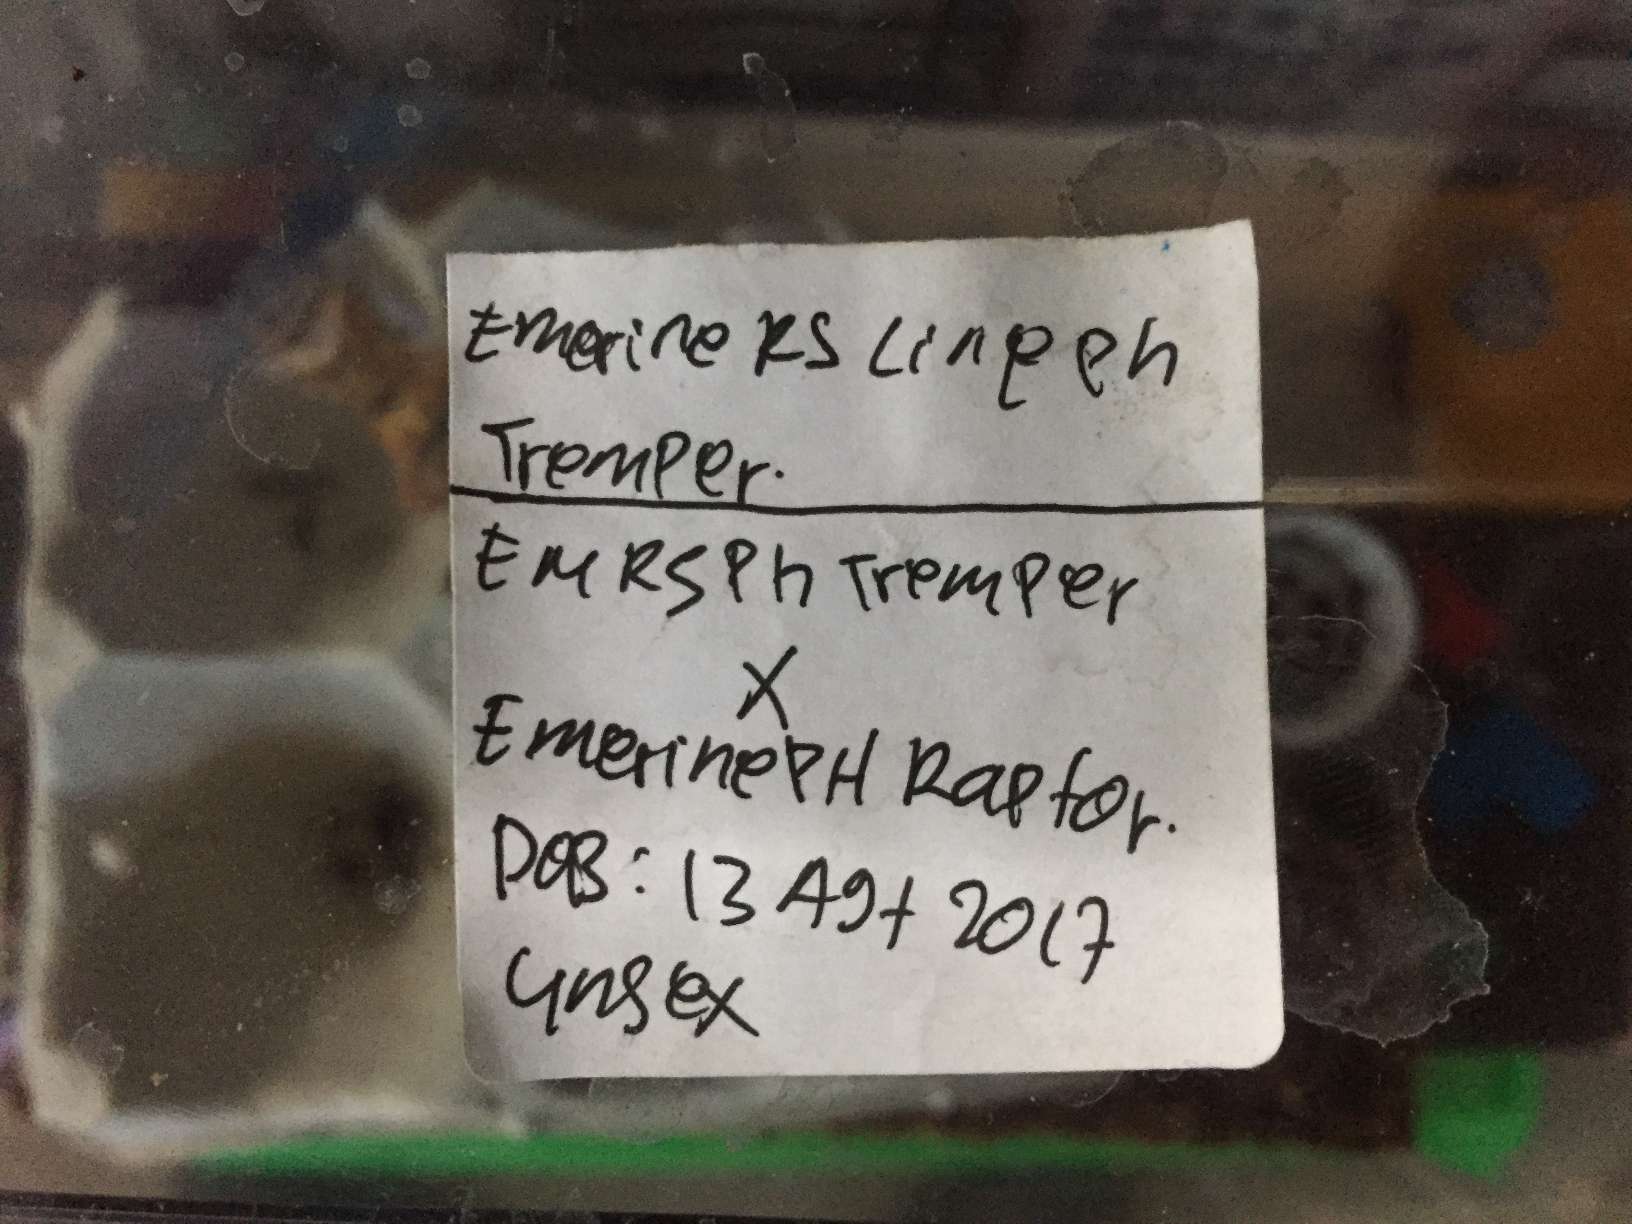 Emerine RS Line Ph
Tremper.
EM RS Ph Tremper
X
Emerine PH Raptor.
DOB: 13 Agt 2017
Unsex